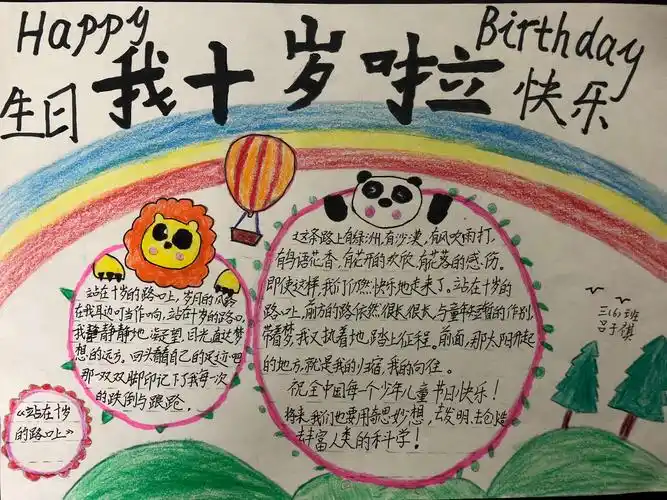 Happy Birthday
我十岁啦
生日快乐
站在十岁的路口上,岁月的风铃
在我耳边叮当作响,站在十岁的路口,
我静静静地凝望,目光直达梦
想的远方,回头瞧自己的足迹吧
那一双双脚印记下了我每一次
的跌倒与踉跄。
这条路上有绿洲,有沙漠,有风吹雨打,
有鸟语花香,有花开的欢欣,有花落的感伤。
即使这样,我们仍然快快地走来了。站在十岁的
路口上,前方的路依然很长、很长,与童年短暂的作别,
带着梦,我又执着地踏上征程。前面,那太阳升起
的地方,就是我的归宿,我的向往。
祝全中国每个少年儿童节日快乐!
将来我们也要用奇思妙想,去发明、去创造
去丰富人类的科学!
三(6)班
吕子祺
《站在十岁
的路口上》